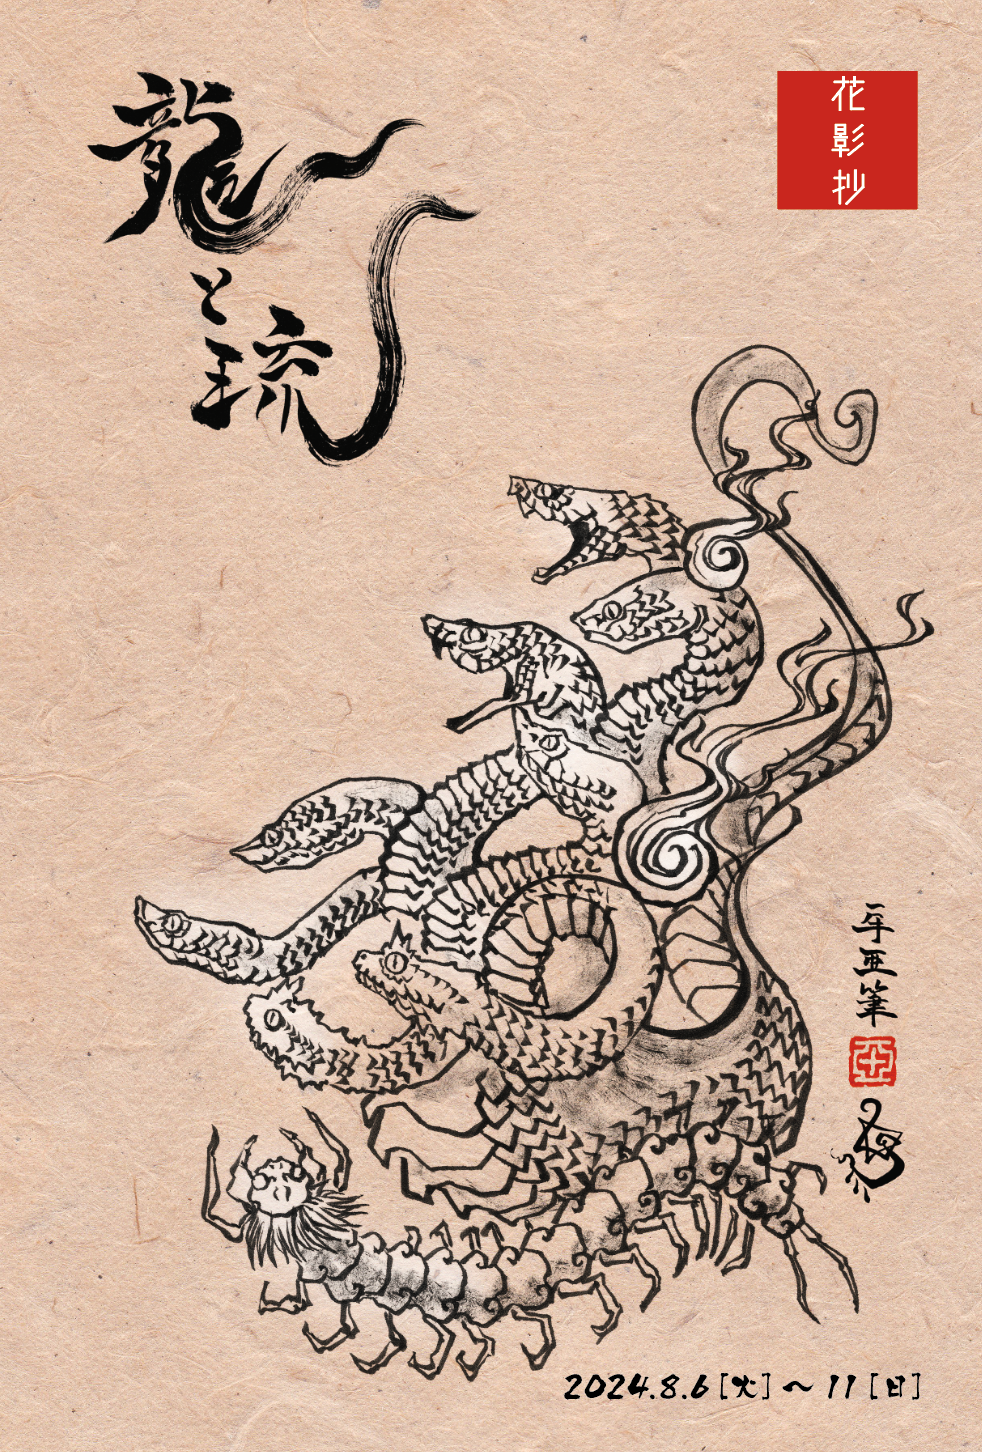 龍
と
琉
花影抄
年亜筆
亞
2024.8.6[火]～11[日]